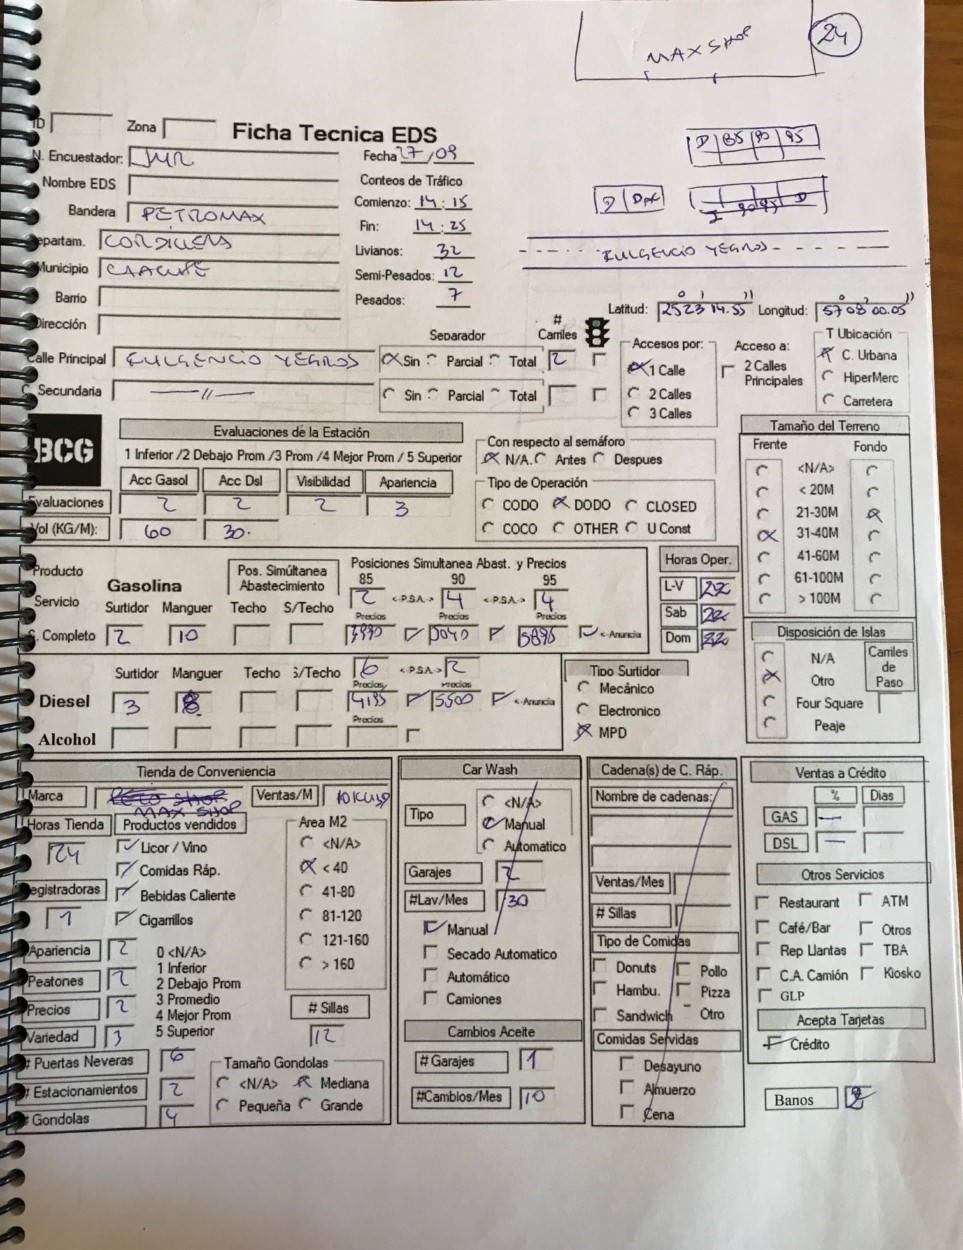 MAX SHOP
24
ID Zona
Ficha Tecnica EDS
D 85 90 95
N. Encuestador: JMR
Fecha 27/09
Nombre EDS
Conteos de Tráfico
Bandera PETROMAX
Comienzo: 14:15
D
Departam. CORDILLERA
Fin: 14:25
FULGENCIO YEGROS
Municipio CAACUPE
Livianos: 32
Semi-Pesados: 12
Barrio
Pesados: 7
Dirección
Latitud: 25 23 14.55 Longitud: 57 08 00.05
o ' '' o ' ''
Separador # Carriles
Calle Principal FULGENCIO YEGROS Sin Parcial Total 2
C. Secundaria —//— Sin Parcial Total
Accesos por:
1 Calle
2 Calles
3 Calles
Acceso a:
2 Calles Principales
T Ubicación
C. Urbana
HiperMerc
Carretera
BCG
Evaluaciones de la Estación
1 Inferior /2 Debajo Prom /3 Prom /4 Mejor Prom / 5 Superior
Acc Gasol Acc Dsl Visibilidad Apariencia
Evaluaciones 2 2 2 3
Vol (KG/M): 60 30.
Con respecto al semáforo
N/A. Antes Despues
Tipo de Operación
CODO DODO CLOSED
COCO OTHER U Const
Tamaño del Terreno
Frente Fondo
<N/A>
< 20M
21-30M
31-40M
41-60M
61-100M
> 100M
Producto
Servicio
Gasolina
Pos. Simúltanea Abastecimiento
Posiciones Simultanea Abast. y Precios
85 90 95
2 <-P.S.A-> 4 <-P.S.A-> 4
Surtidor Manguer Techo S/Techo Precios Precios Precios
S. Completo 2 10 5040 <-Anuncia
Horas Oper.
L-V
Sab
Dom
Disposición de Islas
N/A
Otro
Four Square
Peaje
Carriles de Paso
Surtidor Manguer Techo S/Techo 6 <-P.S.A-> 2
Precios Precios
Diesel 3 8 5500 <-Anuncia
Precios
Alcohol
Tipo Surtidor
Mecánico
Electronico
MPD
Tienda de Conveniencia
Marca MAX SHOP Ventas/M
Horas Tienda Productos vendidos
24
Licor / Vino
Comidas Ráp.
Registradoras Bebidas Caliente
1 Cigarrillos
Area M2
<N/A>
< 40
41-80
81-120
121-160
> 160
Apariencia 2
Peatones 2
Precios 2
Variedad 3
0 <N/A>
1 Inferior
2 Debajo Prom
3 Promedio
4 Mejor Prom
5 Superior
# Sillas
12
# Puertas Neveras 6
# Estacionamientos 2
# Gondolas 4
Tamaño Gondolas
<N/A> Mediana
Pequeña Grande
Car Wash
Tipo
<N/A>
Manual
Automatico
Garajes 2
#Lav/Mes 30
Manual
Secado Automatico
Automático
Camiones
Cambios Aceite
# Garajes 1
#Cambios/Mes 10
Cadena(s) de C. Ráp.
Nombre de cadenas:
Ventas/Mes
# Sillas
Tipo de Comidas
Donuts Pollo
Hambu. Pizza
Sandwich Otro
Comidas Servidas
Desayuno
Almuerzo
Cena
Ventas a Crédito
% Dias
GAS —
DSL —
Otros Servicios
Restaurant ATM
Café/Bar Otros
Rep Llantas TBA
C.A. Camión Kiosko
GLP
Acepta Tarjetas
Crédito
Banos 2